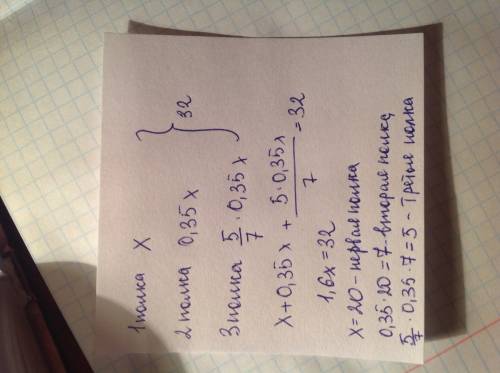 1 полка X
2 полка 0,35 x } 32
3 полка 5/7 · 0,35 x
x + 0,35 x + 5·0,35 x / 7 = 32
1,6x = 32
x = 20 - первая полка
0,35 · 20 = 7 - вторая полка
5/7 · 0,35 · 7 = 5 - третья полка